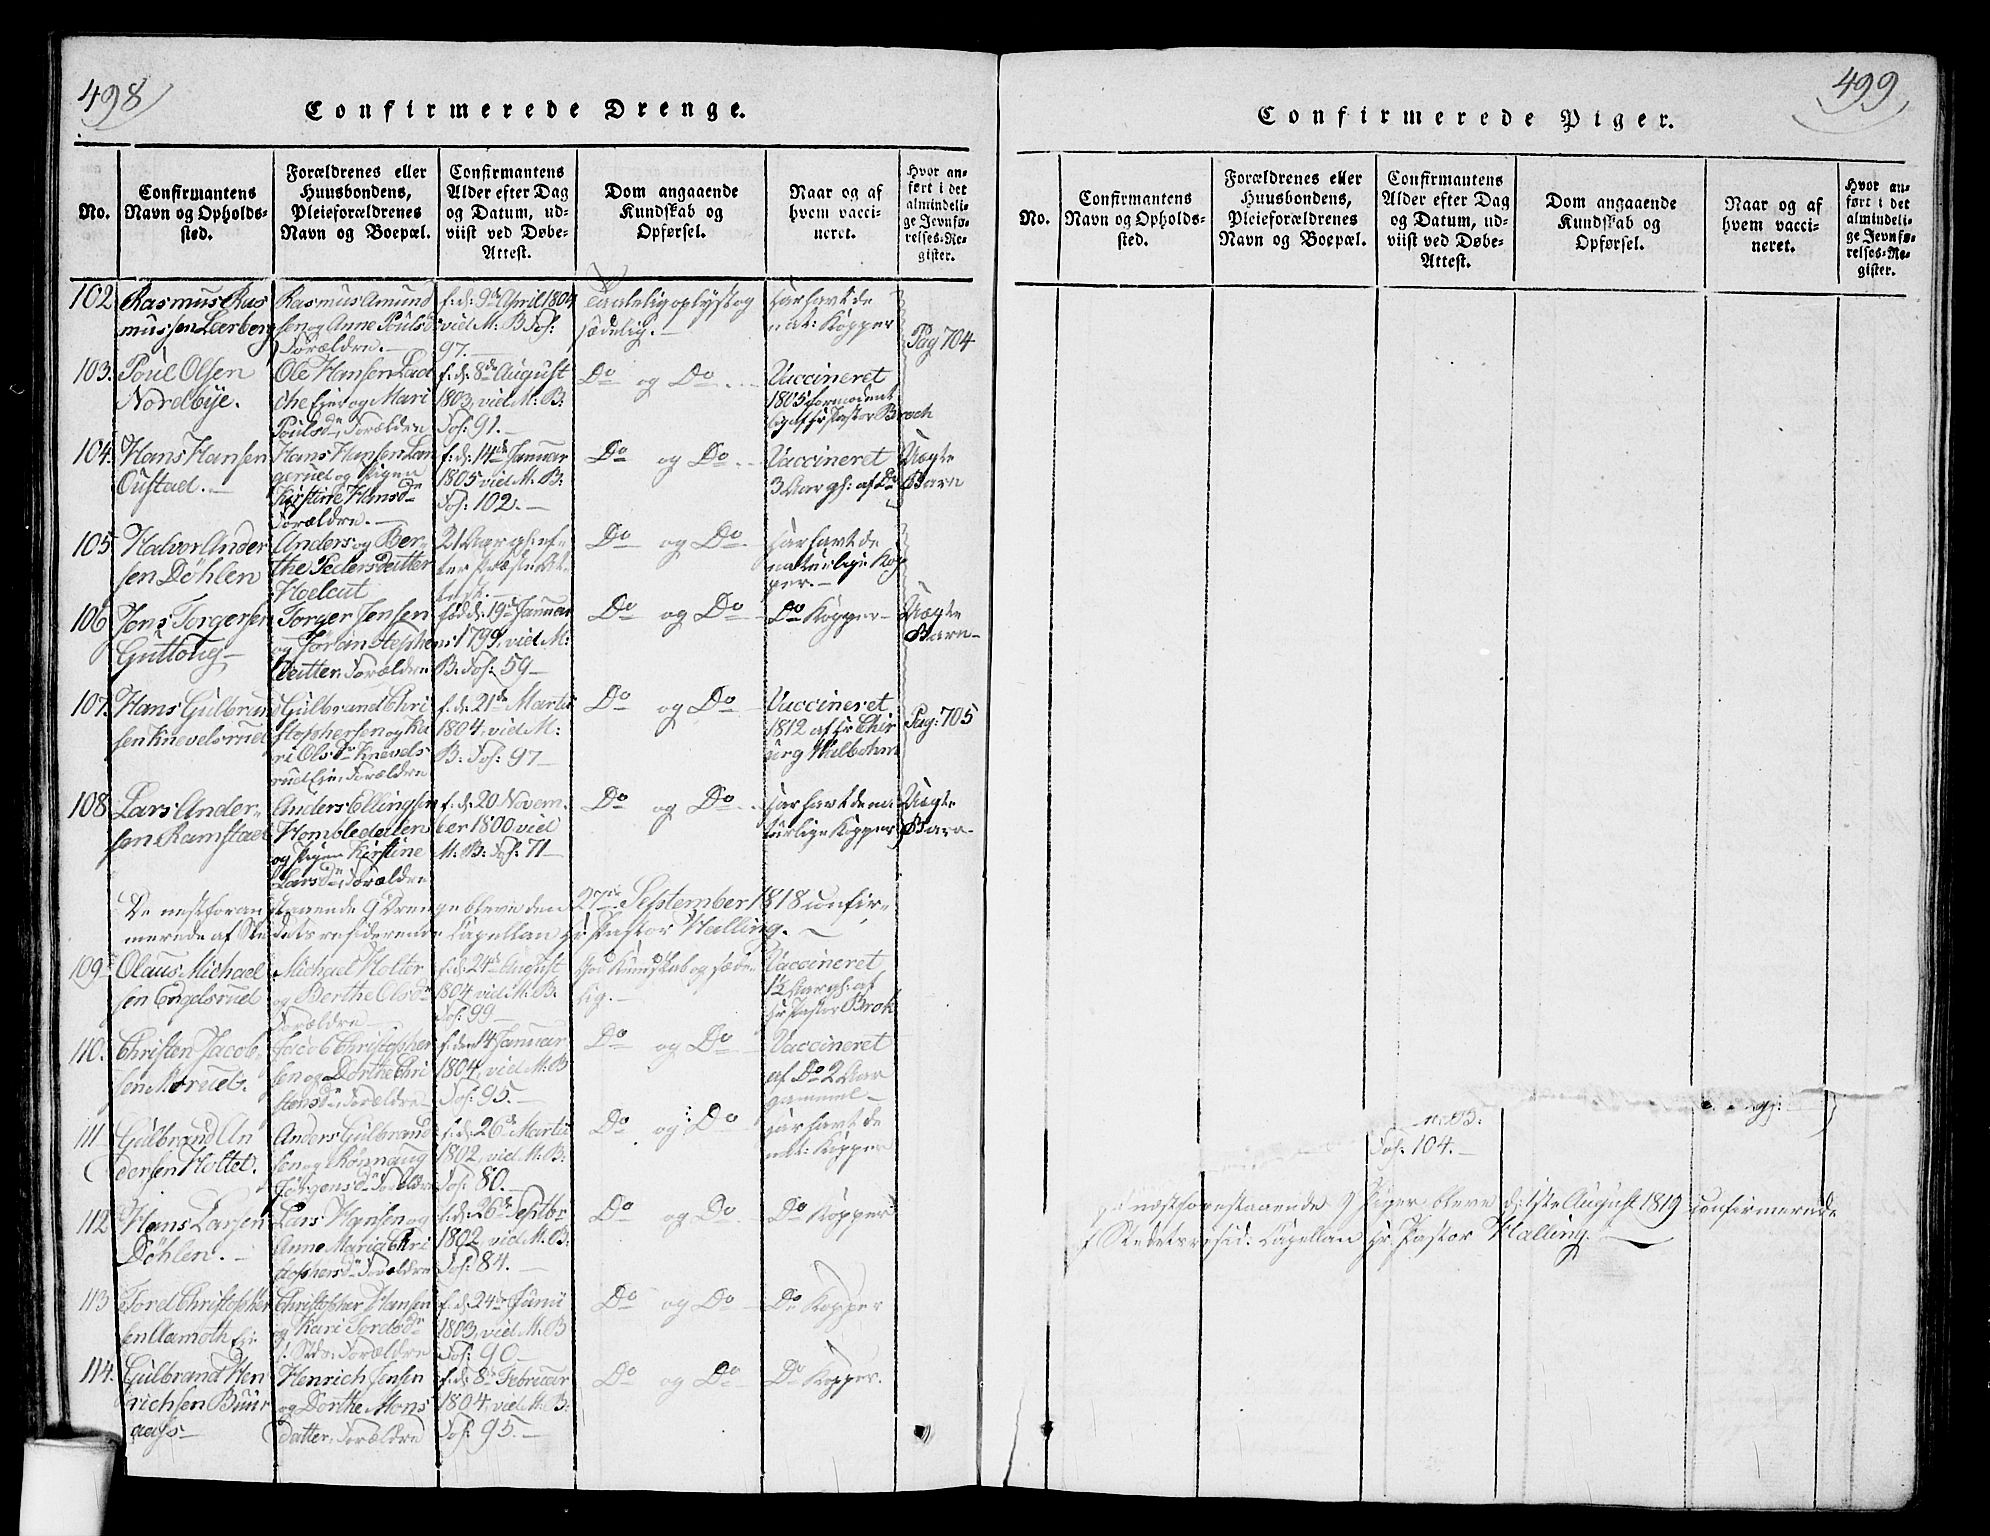 498
Confirmerede Drenge.
No.
Confirmantens
Navn og Opholds-
sted.
Forældrenes eller
Huusbondens,
Pleieforældrenes
Navn og Boepæl.
Confirmantens
Alder efter Dag
og Datum, ud-
viist ved Døbe-
Attest.
Dom angaaende
Kundskab og
Opførsel.
Naar og af
hvem vacci-
neret.
Hvor an-
ført i det
almindeli-
ge Jevnfø-
relses-Re-
gister.
102
Rasmus Ras
mussen Leerberg
Rasmus Amund
sen og Anne Pouls D:
Forældre.—
f. d: 9de April 1804
vid M: B Fol:
97.—
Taalelig oplyst og
sædelig.—
har havt de
nat: Kopper
Pag 704
103.
Poul Olsen
Nordbye.
Ole Hansen
Eier og Mari
Poulsdr Forældre
f. d. 8de August
1803, vid M: B:
Fol: 91.—
Do og Do
Vaccineret
1805 formodent
lig af Hr Pastor Broch
104.
Hans Hansen
Oustad.—
Hans Hansen Lan
gerud og Pigen
Kirstine Hansdr
Forældre.—
f. d: 14de Januar
1805 vid M: B:
Fol: 102.—
Do og Do
Vaccineret
3 Aar gl: af Do
Uægte
Barn
105
Halvor Ander
sen Döhlen
Anders og Ber-
the Pedersdatter
21 Aar gl: ef-
ter Præste At-
test.—
Do og Do
har havt de
naturlige Kop
per.—
106
Jens Torgersen
Guttoug
Torger Jensen
og Jöran Stephens
Datter, Forældre
født d: 19de Januar
1799, vid M:
B: Fol: 59—
Do og Do
Do Kopper—
Uægte
Barn—
107.
Hans Gulbrand
sen Knevelsrud
Gulbrand Chri
stophersen og Ka
ri Olsdr Knevels
rud Eie, Forældre
f. d: 21de Martii
1804, vid M:
B: Fol: 97—
Do og Do
Vaccineret
1812 af Hr Chir
urg
Pag: 705
108
Lars Ander-
sen Ramstad
Anders Ellingsen
Hombledalen
og Pigen Kirstine
Larsdr, Forældre
f. d: 20 Novem-
ber 1800 vid
M: B: Fol: 71—
Do og Do
har havt de na
turlige Kopper
Uægte
Barn—
De nestforanstaaende 9 Drenge bleve den 27de September 1818 confir-
merede af Stedets residerende Capellan Hr Pastor Halling.—
109
Olaus Michael
sen Engelsrud
Michael Holter
og Berthe Olsdr
Forældre—
f. d: 24de August
1804 vid M: B:
Fol: 99—
God Kundskab og sæde-
lig.—
Vaccineret
1½ Aar gl: af
Hr Pastor Brok
110.
Christen Jacob-
sen Morud.
Jacob Christopher
sen og Dorthe Chri
stensdr, Forældre—
f. den 14 Januar
1804, vid M: B
Fol: 95.—
Do og Do
Vaccineret
af Do 2 Aar
gammel—
111
Gulbrand An
dersen Holtet.
Anders Gulbrand
sen og Rönnaug
Jörgensdr Forældre
f. d: 26de Martii
1802, vid M: B:
Fol: 80.—
Do og Do
har havt de
nat: Kopper
112
Hans Larsen
Döhlen.—
Lars Hansen og
Anne Maria Chri
stophersdr Forældre
f. d: 26de Septbr
1802, vid M: B:
Fol: 84.—
Do og Do
Do Kopper
113
Tord Christopher
sen Aamoth Eie
Christopher Hansen
og Kari Tordsdr
Forældre
f. d: 24de Junii
1803, vid M: B
Fol: 90—
Do og Do
Do Kopper
114.
Gulbrand Hen
richsen Buur
aas—
Henrich Jensen
og Dorthe Mons
datter, Forældre
f. d: 8de Februar
1804, vid M: B:
Fol: 95.—
Do og Do
Do Kopper.
499
Confirmerede Piger.
No.
Confirmantens
Navn og Opholds-
sted.
Forældrenes eller
Huusbondens,
Pleieforældrenes
Navn og Boepæl.
Confirmantens
Alder efter Dag
og Datum, ud-
viist ved Døbe-
Attest.
Dom angaaende
Kundskab og
Opførsel.
Naar og af
hvem vacci-
neret.
Hvor an-
ført i det
almindeli-
ge Jevnfø-
relses-Re-
gister.
Fol: 104.—
næstforestaaende 9 Piger bleve d: 1ste August 1819 confirmerede
af Stedets resid. Capellan Hr Pastor Halling.—